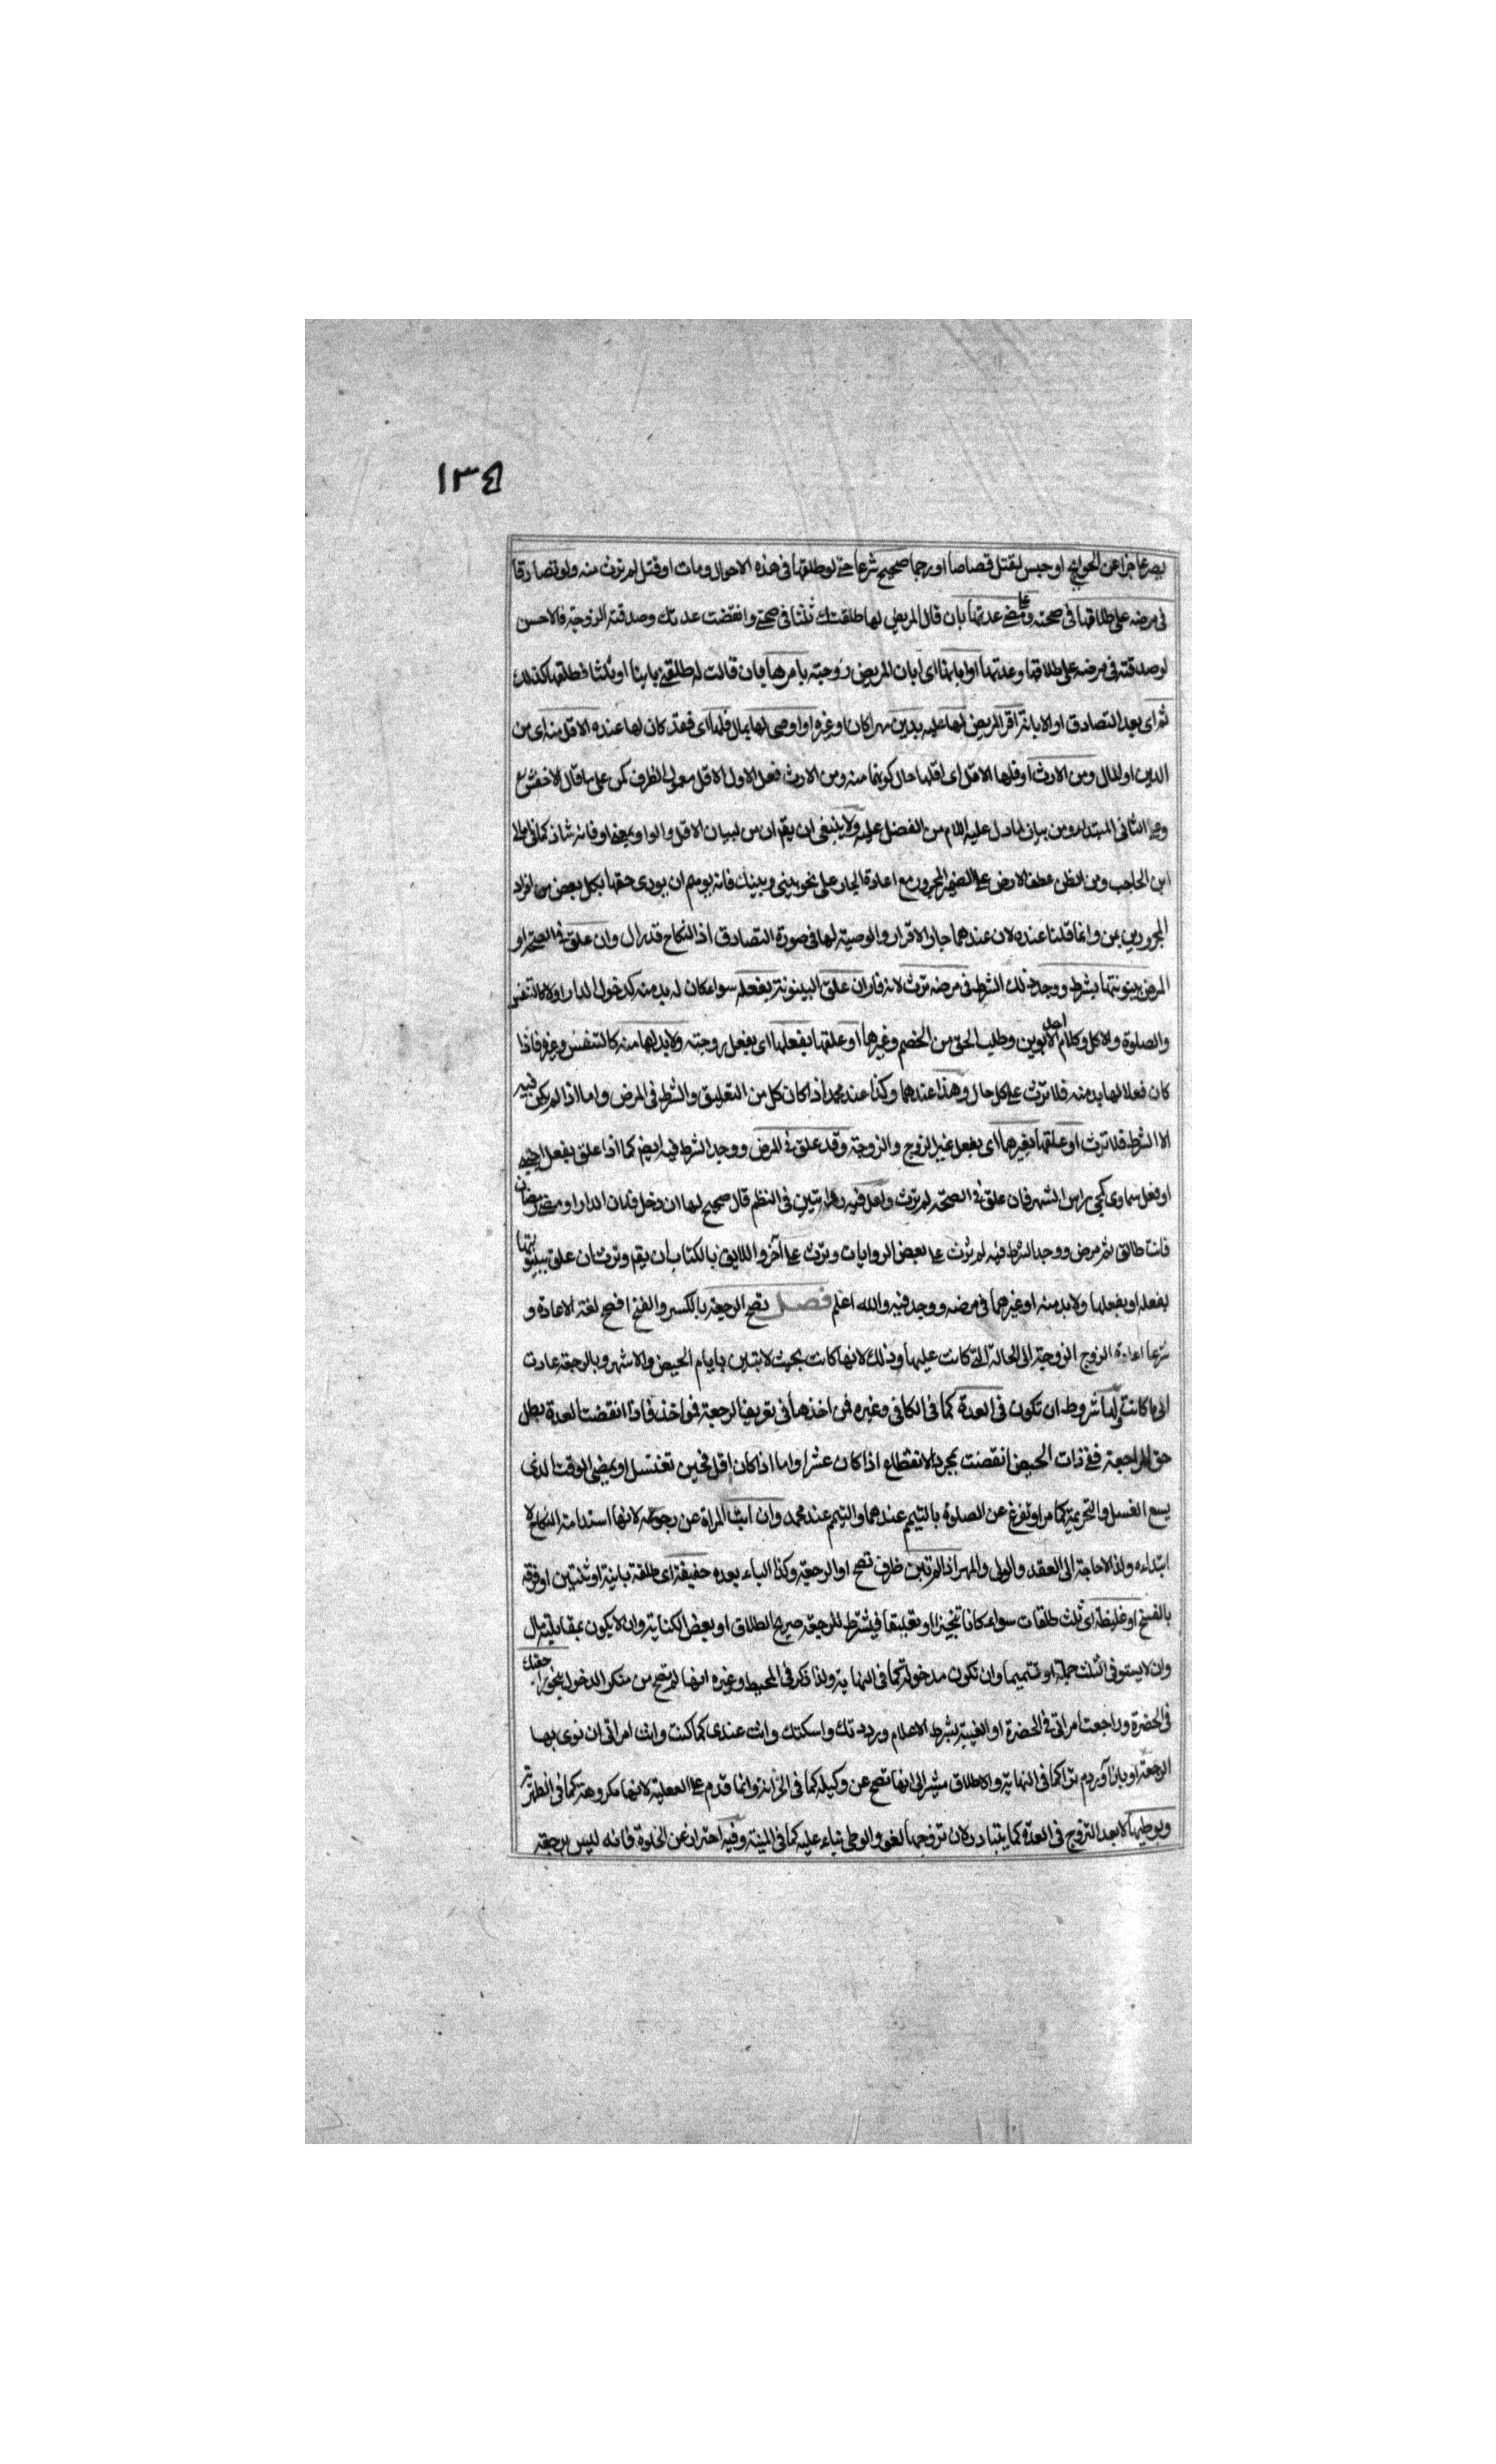 ١٣٤
يصر عاجزا عن الحوائج او حبس ليقتل قصاصا او رجما صحيح شرعا حتى لو طلقها فى هذه الاحوال ومات او قتل لم ترث منه ولو تصادقا
فى مرضه على طلاقها فى صحته ومضى عدتها بان قال المريض لها طلقتك ثلثا فى صحتى وانقضت عدتك وصدقته الزوجة فالاحسن
لو صدقته فى مرضه على طلاقها وعدتها او ابانها اى ابان المريض زوجته بامرها بان قالت له طلقنى باينا او ثلثا فطلقها كذلك
ثم اى بعد التصادق او الابانة اقر المريض لها عليه بدين مهرا كان او غيره او اوصى لها بمال فلها اى فقد كان لها عنده الاقل منه اى من
الدين او المال ومن الارث او فلها الاقل اى اقلها حال كونها منه ومن الارث فعلى الاول الاقل معمول الظرف على ما قال الاخفش
وعلى الثانى المبتدا ومن بيان لما دل عليه اللام من الفضل عليه ولا ينبغى ان يقم ان من لبيان الاقل والواو بمعنى او فانه شاذ كما فى
ابن الحاجب ومن الظن عطف الارض على الضمير المجرور مع اعادة الجار على نحو بينى وبينك فانه يوهم ان يودى حقها بكل بعض من افراد
المجرورين بمن وانما قلنا عنده لان عندهما جاز الاقرار والوصية لها فى صورة التصادق اذ النكاح قد زال وان علق فى الصحة او
المرض بينونتها بشرط ووجد ذلك الشرط فى مرضه ترث لانه فار ان علق البينونة بفعله سواء كان له بد منه كدخول الدار او لا كالتنفس
والصلوة والاكل وكلام احد الابوين وطلب الحق من الخصم وغيرها او علقها بفعلها اى بفعل زوجته ولا بد لها منه كالتنفس وغيره فاذا
كان فعلا لها بد منه فلا ترث على كل حال وهذا عندهما وكذا عند محمد اذا كان كل من التعليق والشرط فى المرض واما اذا لم يكن فيه
الا الشرط فلا ترث او علقها بغيرهما اى بفعل غير الزوج والزوجة وقد علق فى المرض ووجد الشرط فيه ايضم كما اذا علق بفعل
او فعل سماوى كمجى راس الشهر فان علق فى الصحة لم ترث ولعل فيه روايتين فى النظم قال صحيح لها ان دخل فلان الدار او مضى رمضان
فانت طالق ثم مرض ووجد الشرط فيه لم ترث على بعض الروايات وترث على آخر واللايق بالكتاب ان يقم وترث ان علق بينونتها
بفعله او بفعلها ولا بد منه او غيرهما فى مرضه ووجد فيه والله اعلم فصل تصح الرجعة بالكسر والفتح افصح لغة الاعادة و
شرعا اعادة الزوج الزوجة الى الحالة التى كانت عليها وذلك لانها كانت بحيث لا تبين بايام الحيض والاشهر وبالرجعة عادت
الى ما كانت ولها شروط ان تكون فى العدة كما فى الكافى وغيره فمن اخذها فى تعريف الرجعة فمواخذ فاذا انقضت العدة بطل
حق المراجعة ففى ذات الحيض انقضت بمجرد الانقطاع اذا كان عشرا واما اذا كان اقل فحين تغتسل او يمضى الوقت الذى
يسع الغسل والتحريمة كما مر او تفرغ عن الصلوة بالتيمم عندهما والتيمم عند محمد وان ابت المراة عن رجوعه لانها استدامة النكاح لا
ابتداءه ولذا لا حاجة الى العقد والولى والمهر اذا لم تبن ظرف تصح او الرجعة وكذا الباء بعده خفيفة اى طلقة باينة او ثنتين او فرقة
بالفسخ او غليظة اى ثلث طلقات سواء كانا تنجيزا او تعليقا فيشترط للرجعة صريح الطلاق او بعض الكناية وان لا يكون بمقابلة مال
وان لا يستوفى الثلث جملة او تتميما وان تكون مدخولة كما فى النهاية ولذا ذكر فى المحيط وغيره انها لم تصح من منكر الدخول بنحو راجعتك
فى الحضرة وراجعت امراتى فى الحضرة او الغيبة بشرط الاعلام ورددتك وامسكتك وانت عندى كما كنت وانت امراتى ان نوى بها
الرجعة او باز آوردم ترا كما فى النهاية والاطلاق مشير الى انها تصح عن وكيله كما فى الخزانة وانما قدم على الفعلية لانها مكروهة كما فى الظهيرية
وبوطيها لا بعد التزوج فى العدة كما يتبادر لان تزوجها لغو والوطى بناء عليه كما فى المنية وفيه احتراز عن الخلوة فانه ليس برجعة